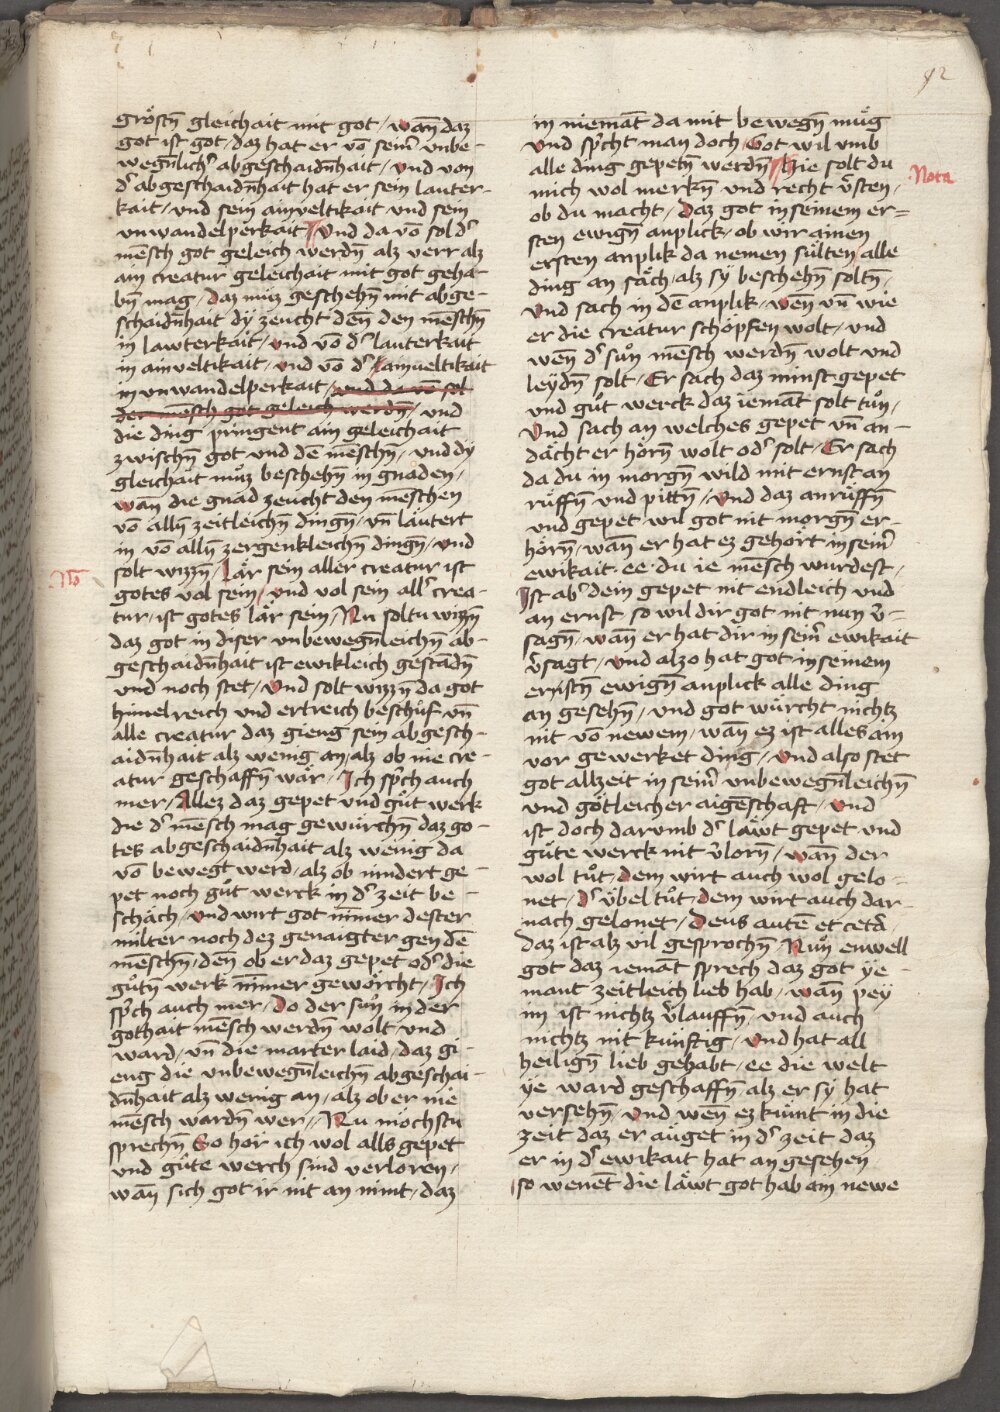 92
gröstñ gleichait mit got / wañ daz
got ist got / daz hat er võ sein͛ vnbe-
wegñlich͛ abgeschaidñhait / vnd von
d͛ abgeschaidñhait hat er sein lauter-
kait / vnd sein ainveltikait vnd sein
vnwandelperkait / Vnd da võ sol d͛
mẽsch got geleich werdñ alz verr alz
ain creatur geleichait mit got geha-
bñ mag / daz müz geschehñ mit abge-
schaidñhait dÿ zeucht deñ den mẽschñ
in lawterkait / vnd võ d͛ lauterkait
in ainveltikait / vnd võ d͛ ainueltikait
in vnwandelperkait / vnd da võ sol
der mẽsch got geleich werdñ / vnd
die ding pringent ain geleichait
zwischñ got vnd dẽ mẽschñ / vnd dÿ
gleichait müz beschehñ in gnaden /
wañ die gnad zeucht den meschen
võ allñ zeitleichñ dingñ / vñ läutert
in võ allñ zergenkleichñ dingñ / vnd
Nõ
solt wizzñ / Lär sein aller creatur ist
gotes vol sein / vnd vol sein all͛ crea-
tur / ist gotes lär sein / Nu soltu wizzñ
daz got in diser vnbewegñleichñ ab-
geschaidñhait ist ewikleich gestãdñ
vnd noch stet / Vnd solt wizzñ da got
himelreich vnd ertreich beschůf vñ
alle creatur daz gieng sein abgesch-
aidñhait alz wenig an / alz ob nie cre-
atur geschaffñ wär / Ich sp͛ch auch
mer / Allez daz gepet vnd gůt werk
die d͛ mẽsch mag gewürchñ daz go-
tes abgeschaidñhait alz wenig da
võ bewegt werd / alz ob nindert ge-
pet noch gůt werck in d͛ zeit be-
schäch / vnd wirt got nĩmer dester
milter noch dez genaigter gen dẽ
mẽschñ / deñ ob er daz gepet od͛ die
gůtñ werk nĩmer geworcht / Ich
sp͛ch auch mer / Do der sůn in der
gothait mẽsch werdñ wolt vnd
ward / vñ die marter laid / daz gi-
eng die vnbewegñleichñ abgeschai-
dñhait alz wenig an / alz ob er nie
mẽsch wordñ wer / Nu möchstu
sprechñ So hör ich wol alls gepet
vnd gůte werch sind verloren /
wañ sich got ir nit an nimt / daz
in niemãt da mit bewegñ müg
vnd sp͛cht man doch / Got wil vmb
alle ding gepetñ werdñ / Hie solt du
Nota
mich wol merkñ vnd recht v͛sten /
ob du macht / Daz got in seinem er=
sten ewigñ anplick / ob wir ainen
ersten anplik da nemen sülten / alle
ding an sach / alz sÿ beschehñ soltñ /
Vnd sach in dẽ anplik / weñ vñ wie
er die creatur schöpfen wolt / vnd
weñ d͛ sůn mẽsch werdñ wolt vnd
leÿdñ solt / Er sach daz minst gepet
vnd gůt werck daz iemãt solt tůn /
Vnd sach an welches gepet vñ an-
dächt er hörñ wolt od͛ solt / Er sach
da du in morgñ wild mit ernst an
rüffñ vnd pittñ / Vnd daz anrüffñ
vnd gepet wil got nit morgñ er-
hörñ / wañ er hat ez gehört in sein͛
ewikait ee du ie mẽsch wurdest /
Ist ab͛ dein gepet nit endleich vnd
an ernst so wil dir got nit nun v͛-
sagñ / wañ er hat dir in sein͛ ewikait
v͛sagt / vnd alzo hat got in seinem
ernstñ ewigñ anplick alle ding
an gesehñ / vnd got würcht nichtz
nit võ newem / wañ ez ist alles am
vor gewerket ding / Vnd also stet
got allzeit in sein͛ vnbewegñleichñ
vnd götleicher aigẽschaft / vnd
ist doch darumb d͛ läwt gepet vnd
gůte werck nit v͛lorñ / wañ der
wol tůt / dem wirt auch wol gelo-
net / d͛ v̈bel tůt dem wirt auch dar-
nach gelonet / Deus autẽ et cetã /
daz ist alz vil gesprochñ Nůn enwell
got daz iemãt sprech daz got ÿe
mant zeitleich lieb hab / wañ peÿ
im ist nichtz v͛lauffñ / vnd auch
nichtz nit künftig / Vnd hat all
heiligñ lieb gehabt / ee die welt
ÿe ward geschaffñ / alz er sÿ hat
versehñ / Vnd weñ ez kümt in die
zeit daz er äuget in d͛ zeit daz
er in d͛ ewikait hat an gesehen
so wenẽt die läwt got hab ain newe